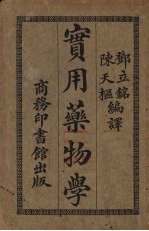 鄧立銘
陳天樞
編譯
實用藥物學
商務印書館出版